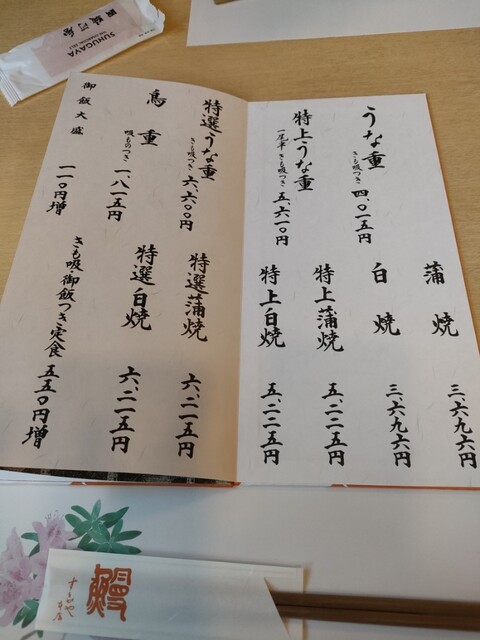 うな重
きも吸つき 四、〇一五円
特上うな重
一尾半 きも吸つき 五、六一〇円
蒲焼 三、六九六円
白焼 三、六九六円
特上蒲焼 五、二二五円
特上白焼 五、二二五円
特選うな重
きも吸つき 六、六〇〇円
鳥重
吸ものつき 一、八一五円
御飯大盛 一一〇円増
特選蒲焼 六、二一五円
特選白焼 六、二一五円
きも吸御飯つき定食 五五〇円増
SUHUGAYA
鰻
すゞや
本店